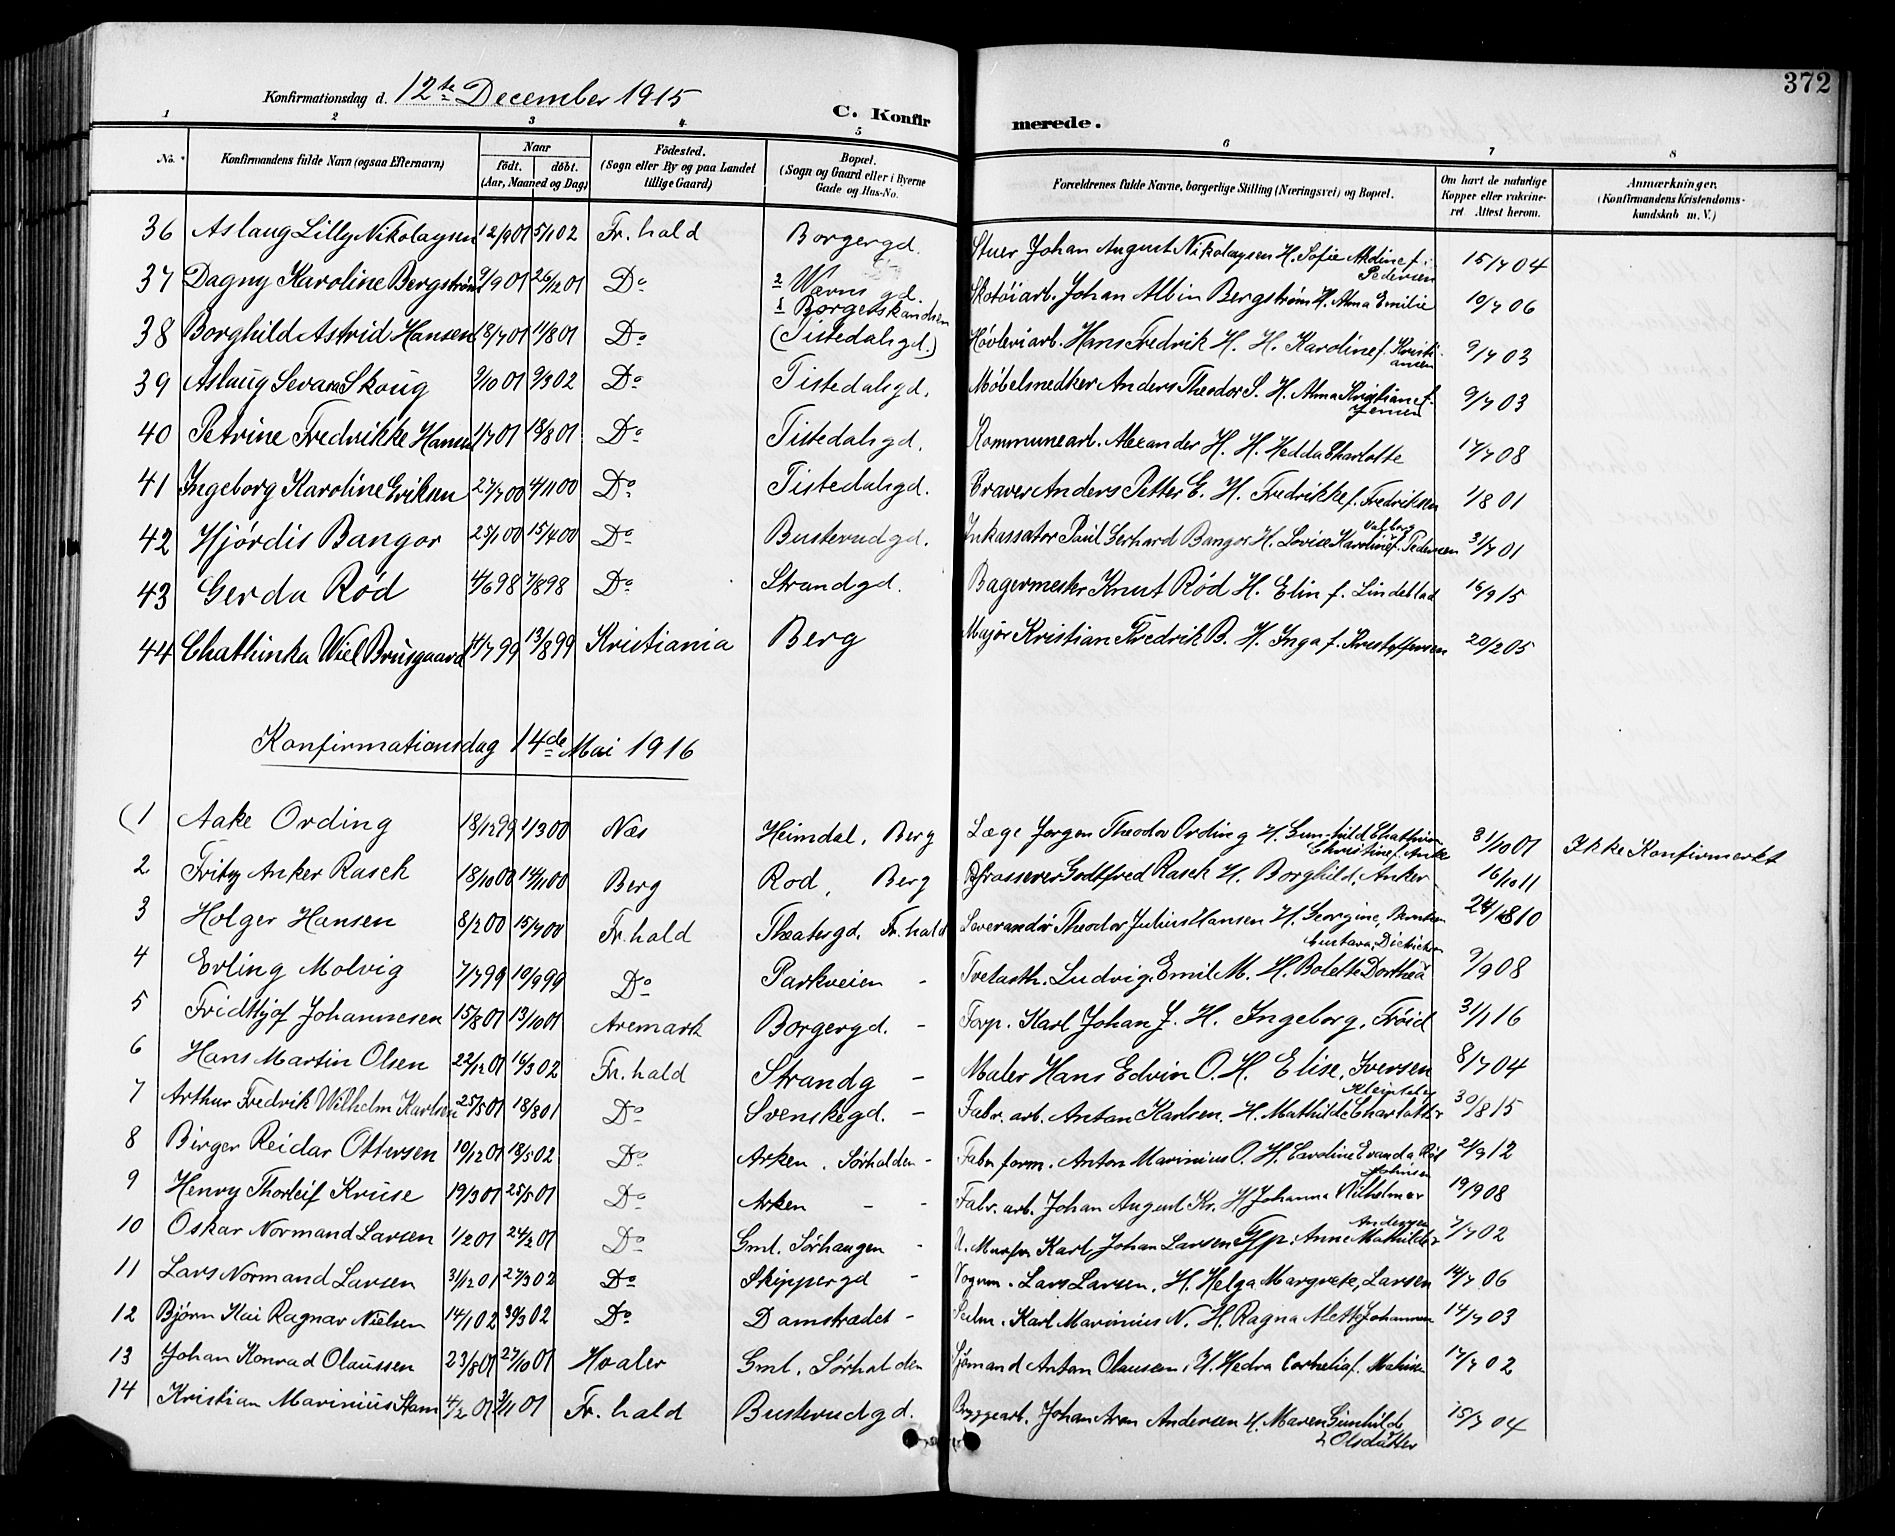 372
Konfirmationsdag d. 12te December 1915
C. Konfirmerede.
1 2 3 4 5 6 7 8
No. Konfirmandens fulde Navn (ogsaa Efternavn) Naar født. døbt. (Aar, Maaned og Dag) Födested. (Sogn eller By og paa Landet tillige Gaard) Bopæl. (Sogn og Gaard eller i Byerne Gade og Hus-No. Forældrenes fulde Navne, borgerlige Stilling (Næringsvei) og Bopæl. Om havt de naturlige Kopper eller vakcineret. Attest herom. Anmærkninger. (Konfirmandens Kristendomskundskab m. V.)
36 Aslaug Lilly Nikolaysen 12/9 01 5/1 02 Fr.hald Borgergd. Stuer Johan August Nikolaysen H. Sofie Aldine f. Pedersen 15/7 04
37 Dagny Karoline Bergstrøm 9/9 01 26/12 01 Do 2 Wærns gd. 1 Borgerskandsen Skotøiarb. Johan Albin Bergstrøm H. Alma Emilie 10/7 06
38 Borghild Astrid Hansen 18/7 01 11/8 01 Do (Tistedalsgd.) Høvleriarb. Hans Fredrik H. H. Karoline f. Kristiansen 9/7 03
39 Aslaug Sevara Skoug 9/10 01 9/3 02 Do Tistedalsgd. Møbelsnedker Anders Theodor S. H. Alma Kristiane f. Jensen 9/7 03
40 Petrine Fredrikke Hansen 1/7 01 18/8 01 Do Tistedalsgd. Kommunearb. Alexander H. H. Hedda Charlotte 17/7 08
41 Ingeborg Karoline Eriksen 27/7 00 4/11 00 Do Tistedalsgd. Graver Anders Petter E. H. Fredrikke f. Fredriksen 1/8 01
42 Hjørdis Bangor 23/1 00 15/4 00 Do Busterudgd. Inkassator Paul Gerhard Bangor H. Lovise Karoline Valborg f. Pedersen 31/7 01
43 Gerda Rød 4/6 98 7/8 98 Do Strandgd. Bagermester Knut Rød H. Elin f. Lindeblad 16/9 15
44 Chathinka Wiel Brusgaard 11/7 99 13/8 99 Kristiania Berg Major Kristian Fredrik B. H. Inga f. Kristoffersen 20/2 05
Konfirmationsdag 14de Mai 1916
(1 Aake Ording 18/12 99 1/3 00 Næs Heimdal, Berg Læge Jørgen Theodor Ording H. Gunhild Chathrine Christine f. Anke 31/10 01 Ikke Konfirmerkt
2 Fritz Anker Rasch 18/10 00 14/11 00 Berg Rod, Berg Grosserer Godtfred Rasch H. Borghild, Anker 16/10 11
3 Holger Hansen 8/2 00 15/7 00 Fr.hald Theatergd. Fr.hald Leverandør Theodor Julius Hansen H. Georgine, Berntsen 24/8 10
4 Erling Molvig 7/7 99 10/9 99 Do Parkveien - Tvetasth. Ludvig Emil M. H. Bolette Dorthea Gustava, Dietrichson 9/9 08
5 Fridthjof Johannesen 15/8 01 13/10 01 Aremark Borgergd. - Forp. Karl Johan J. H. Ingeborg, Frøid 31/1 16
6 Hans Martin Olsen 22/12 01 16/3 02 Fr.hald Strandg - Maler Hans Edvin O. H. Elise, Iversen 8/7 04
7 Arthur Fredrik Wilhelm Karlsen 25/5 01 18/8 01 Do Svenskegd. - Fabr. arb. Anton Karlsen. H. Mathilde Charlotte 30/8 15
8 Birger Reidar Ottersen 10/12 01 18/5 02 Do Arken. Sørhalden - Fabr form. Anton Marinius O. H. Caroline Evanda Röd 21/9 12
9 Henry Thorleif Kruse 19/3 01 25/5 01 Do Arken - - Fabr. arb. Johan August Kr. H Johanna Wilhelmine Johnsen 19/9 08
10 Oskar Normand Larsen 1/2 01 24/2 01 Do Gml. Sørhaugen - Karl Johan Larsen Gjp. Anne Mathilde Andersen 7/7 02
11 Lars Normand Larsen 31/12 01 27/3 02 Do Skippergd - Vognm. Lars Larsen, H. Helga Margrete, Larsen 14/7 06
12 Bjørn Kai Ragnar Nielsen 14/1 02 30/3 02 Do Damstrædet - Karl Marinius N. H. Ragna Alette Johannesen 14/7 03
13 Johan Konrad Olaussen 23/8 01 27/10 01 Hvaler Gml. Sørhalden Sjømand Anton Olaussen, H. Hedva Cornelia f. Mathisen 17/7 02
14 Kristian Marinius Stam 4/2 01 3/11 01 Fr. hald Busterudgd. Bryggearb. Johan Aron Andersen H. Maren Gunhilde Olsdatter 15/7 04